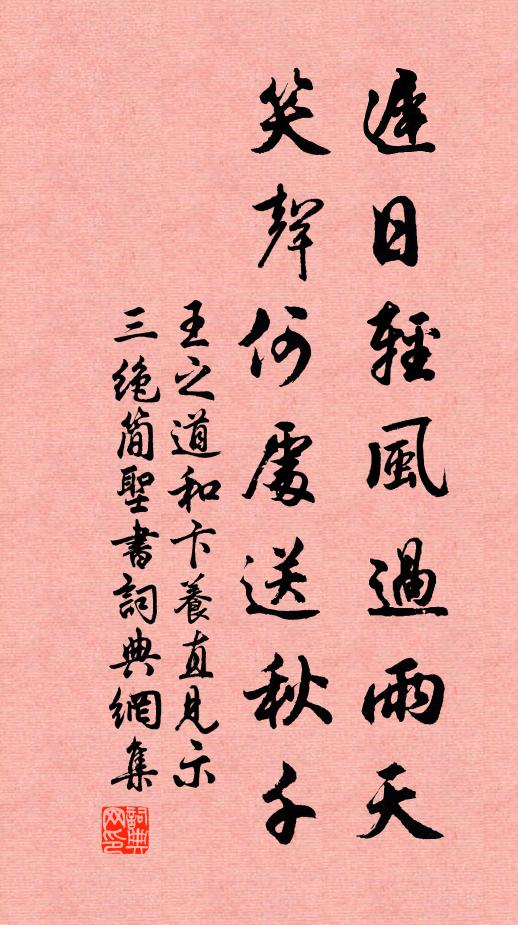 遲日輕風過雨天
笑聲何處送秋千
王之道和卞養直見示
三絕簡聖書詞典網集
詞典网印